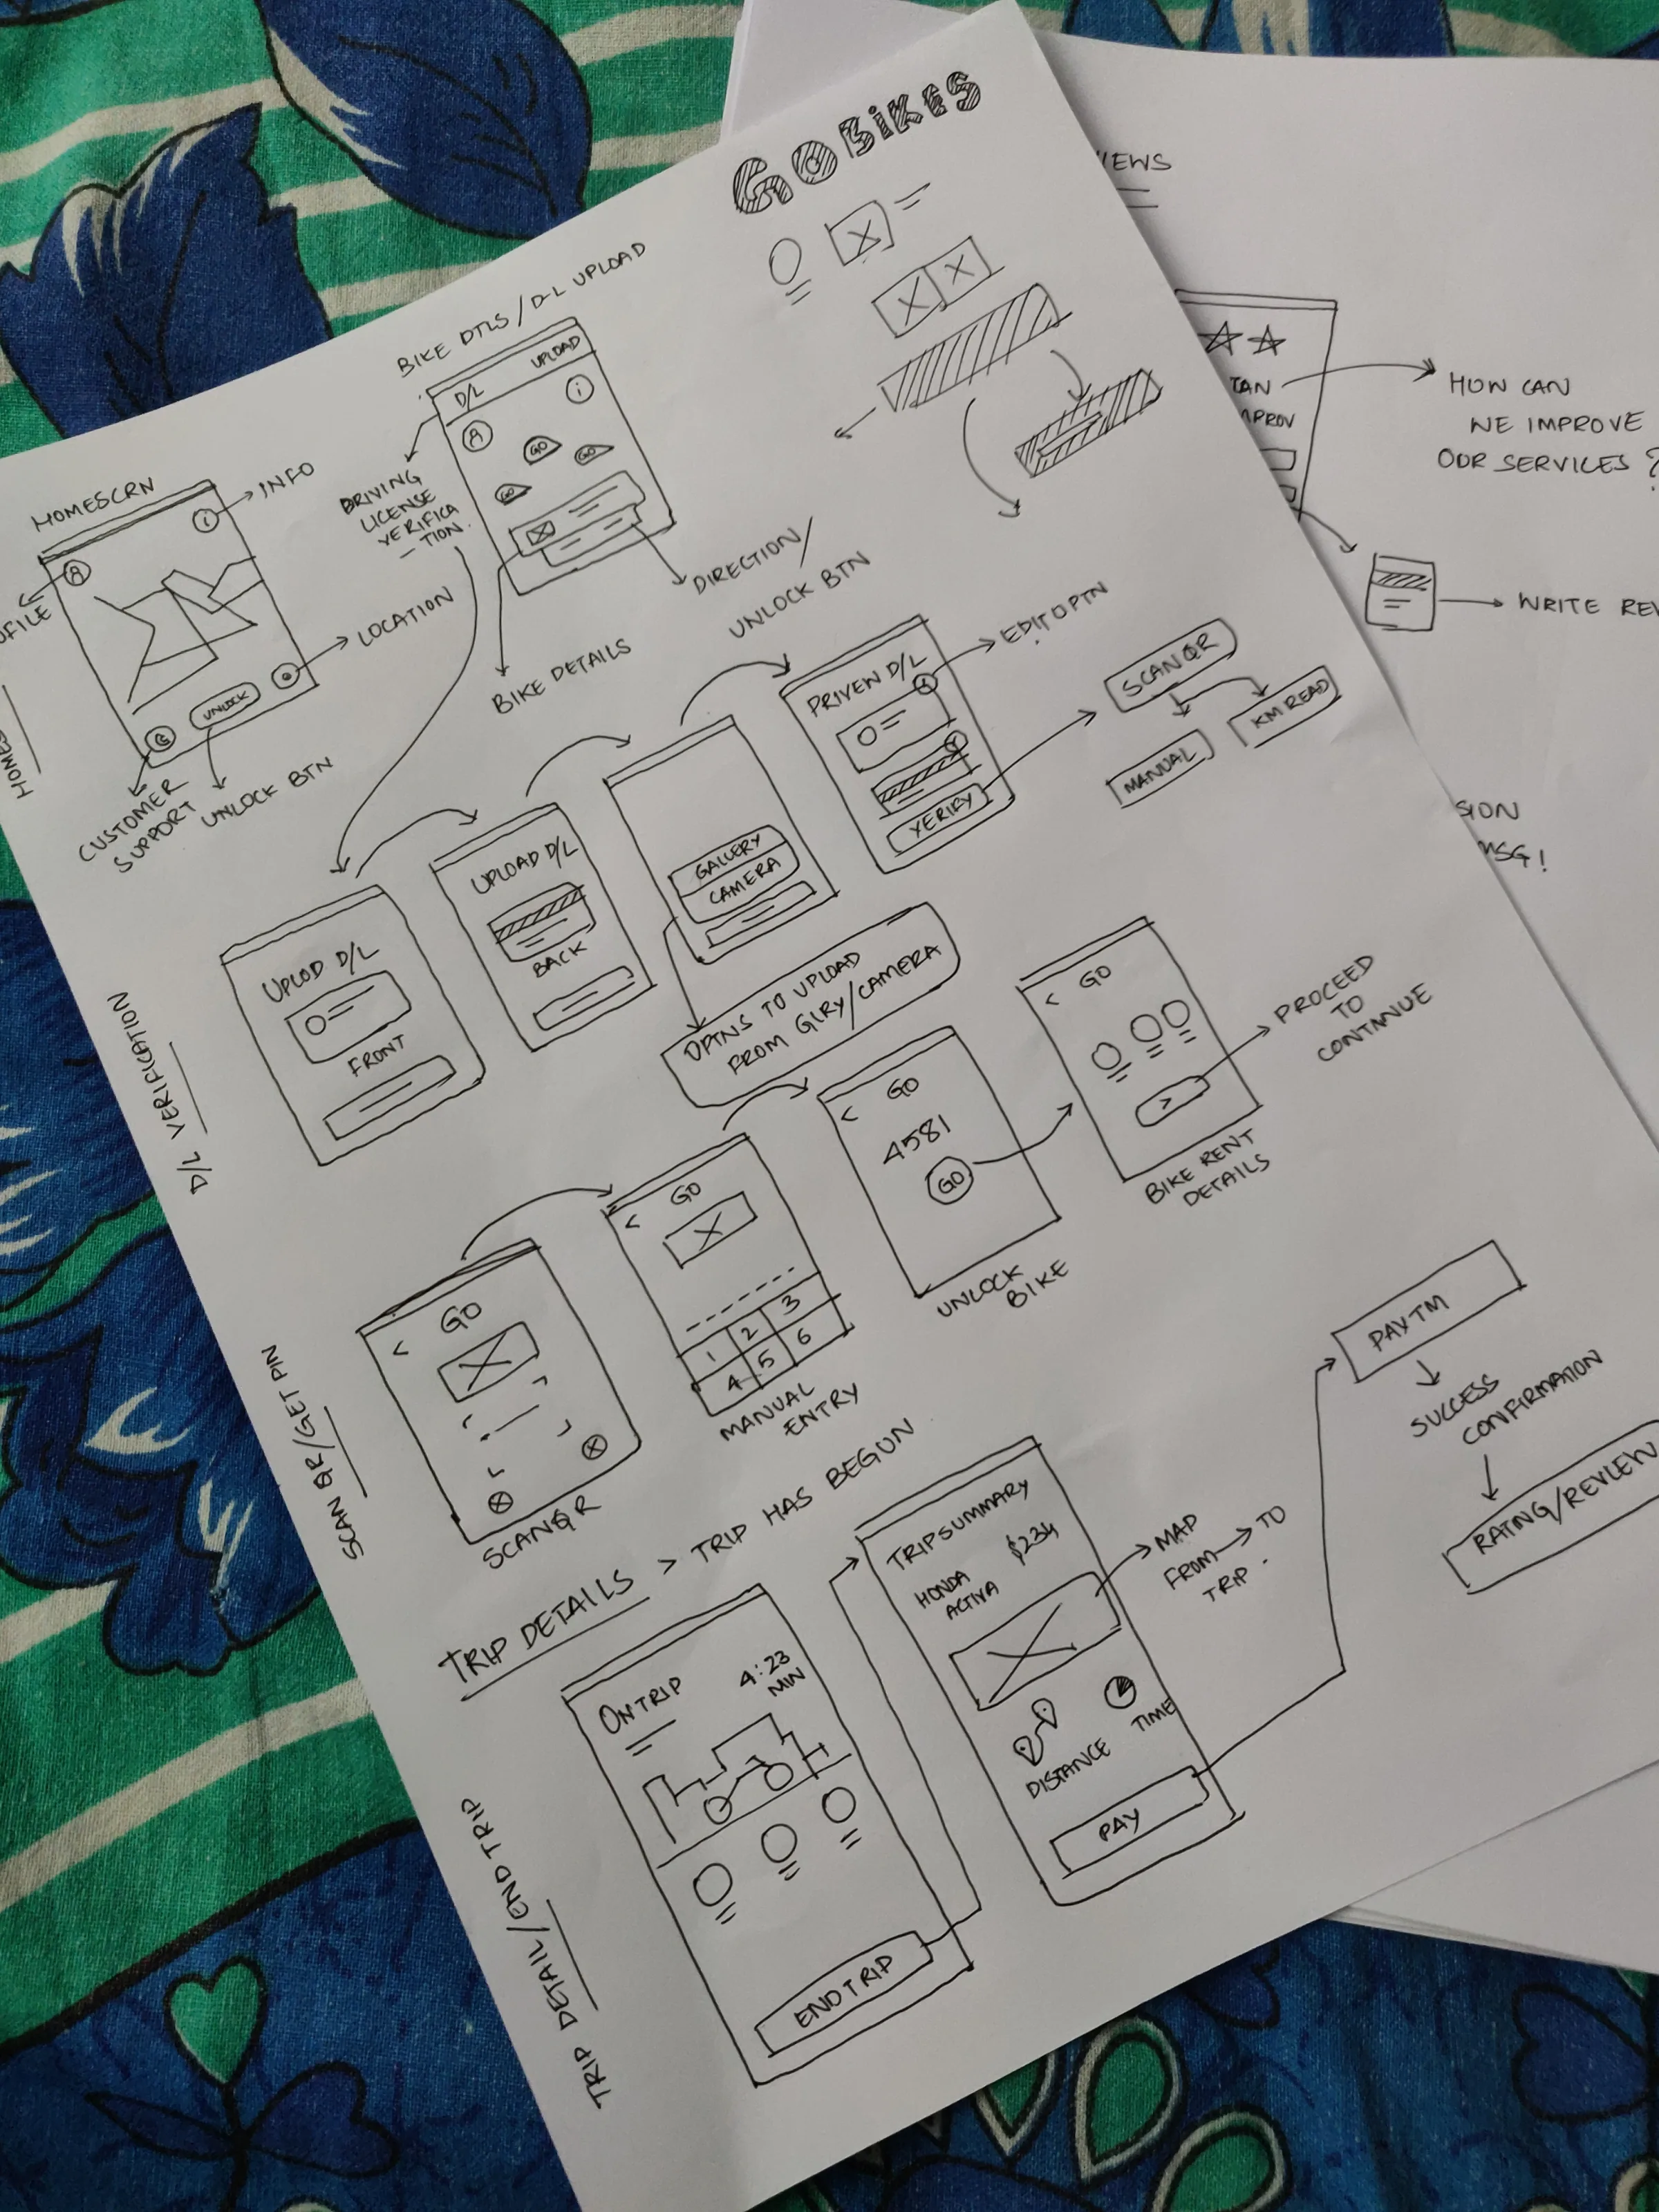 GO BIKES
BIKE DTLS / D-L UPLOAD
D/L UPLOAD
i
GO
GO
GO
DRIVING
LICENSE
VERIFICA
- TION.
BIKE DETAILS
DIRECTION/
UNLOCK BTN
HOMESCRN
INFO
i
LOCATION
UNLOCK
CUSTOMER
SUPPORT
UNLOCK BTN
D/L VERIFICATION
UPLOD D/L
FRONT
UPLOAD D/L
BACK
GALLERY
CAMERA
OPTNS TO UPLOAD
FROM GLRY/CAMERA
D/L
EDIT OPTN
VERIFY
SCAN QR
MANUAL
KM READ
SCAN QR/GET PIN
< GO
SCAN QR
< GO
1 2 3
4 5 6
MANUAL
ENTRY
< GO
4581
GO
UNLOCK
BIKE
< GO
>
BIKE RENT
DETAILS
PROCEED
TO
CONTINUE
TRIP DETAILS > TRIP HAS BEGUN
TRIP DETAIL/END TRIP
ON TRIP
4:23
MIN
END TRIP
TRIP SUMMARY
HONDA
ACTIVA
$234
MAP
FROM → TO
TRIP.
DISTANCE
TIME
PAY
PAYTM
SUCCESS
CONFIRMATION
RATING/REVIEW
HOW CAN
WE IMPROVE
OUR SERVICES ?
WRITE
MSG!